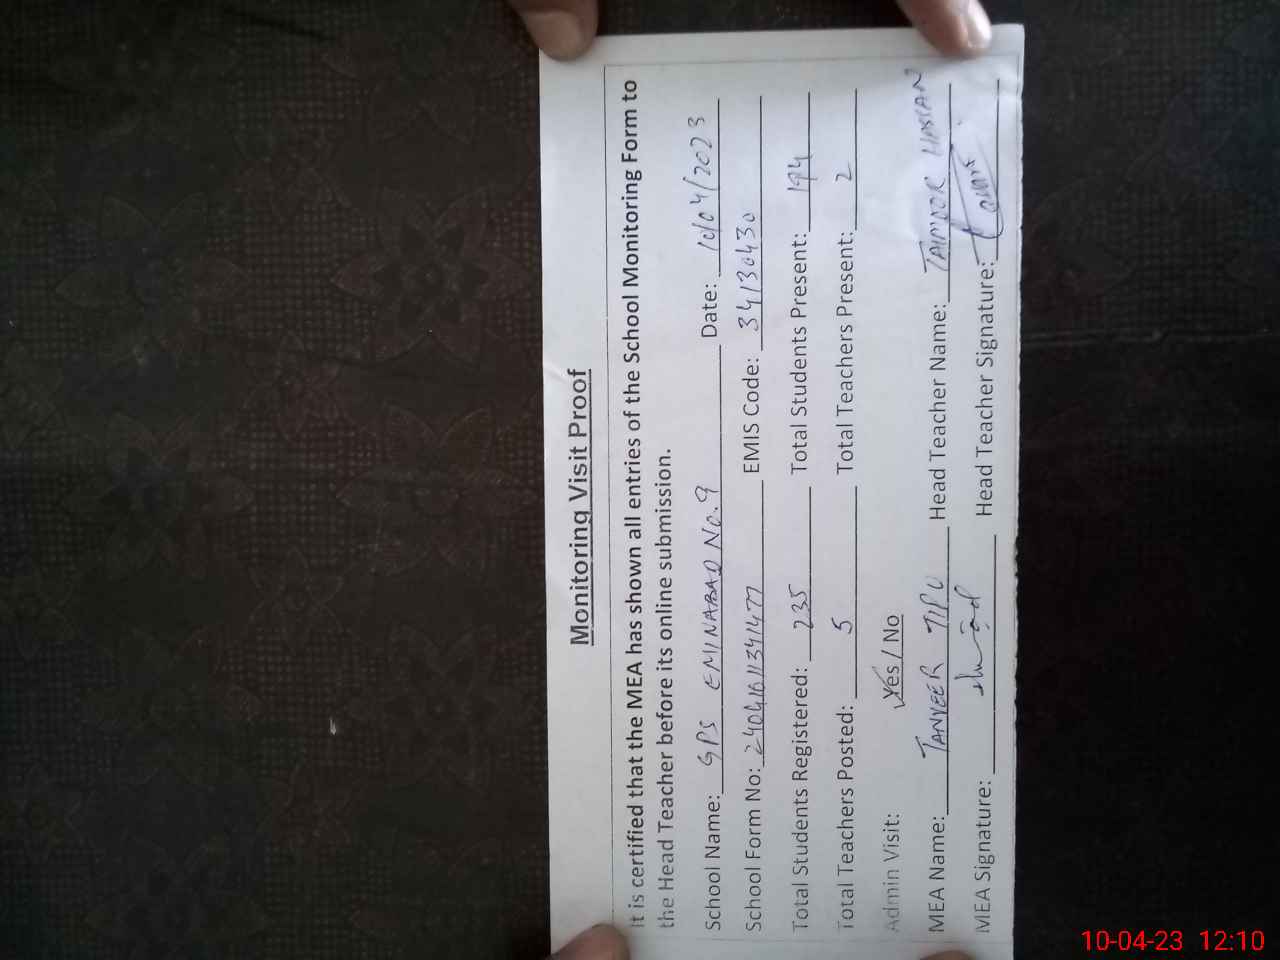 Monitoring Visit Proof
It is certified that the MEA has shown all entries of the School Monitoring Form to
the Head Teacher before its online submission.
School Name: GPS EMINABAD No.9 Date: 10/04/2023
School Form No: 24041611341477 EMIS Code: 34130430
Total Students Registered: 235 Total Students Present: 194
Total Teachers Posted: 5 Total Teachers Present: 2
Admin Visit: Yes / No
MEA Name: TANVEER TIPU Head Teacher Name: TAIMOOR HASSAN
MEA Signature: Head Teacher Signature:
10-04-23 12:10